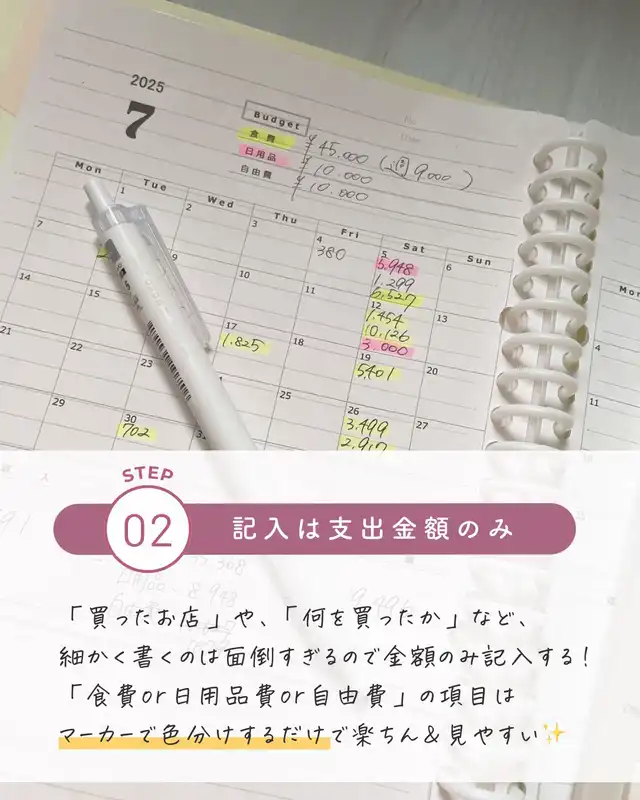 2025
7
Budget
食費 ¥45,000 (週9,000)
日用品 ¥10,000
自由費 ¥10,000
Mon Tue Wed Thu Fri Sat Sun
1 2 3 4 5 6
380
5,948
1,299
6,527
7 9 10 11 12 13
1,454
10,126
3,000
14 15 17 18 19 20
1,825
5401
21 22 23 25 26 27
3,499
2,917
29 30
702
Mon
4
11
STEP
02
記入は支出金額のみ
「買ったお店」や、「何を買ったか」など、
細かく書くのは面倒すぎるので金額のみ記入する!
「食費or日用品費or自由費」の項目は
マーカーで色分けするだけで楽ちん&見やすい✨